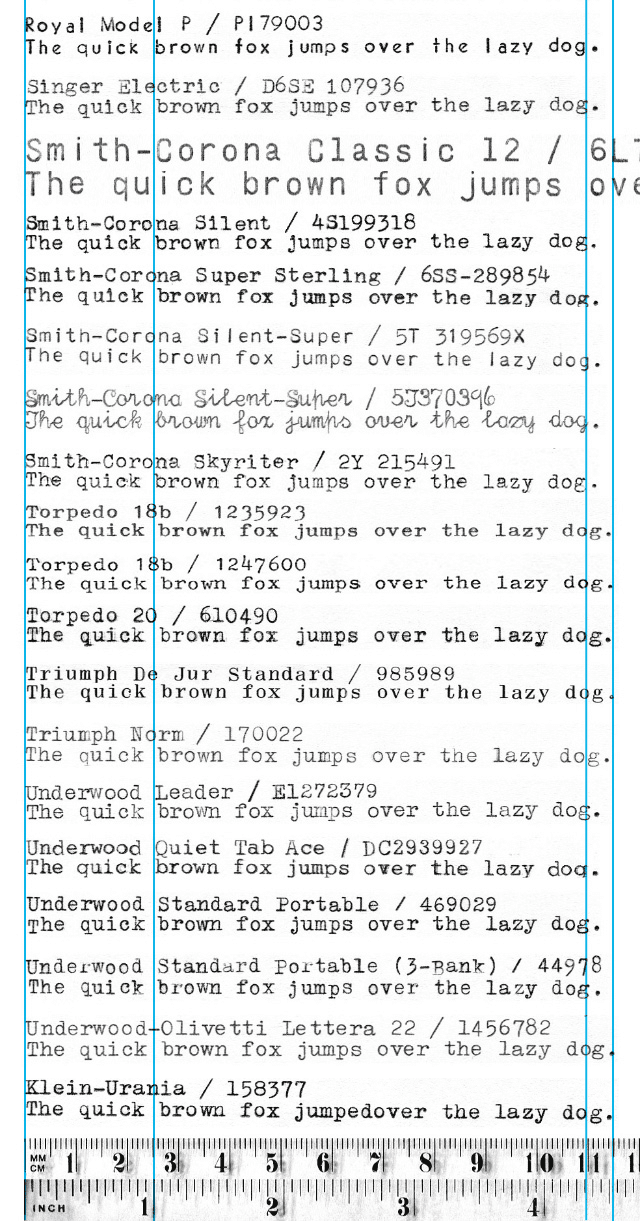 Royal Model P / P179003
The quick brown fox jumps over the lazy dog.
Singer Electric / D6SE 107936
The quick brown fox jumps over the lazy dog.
Smith-Corona Classic 12 / 6L
The quick brown fox jumps ove
Smith-Corona Silent / 4S199318
The quick brown fox jumps over the lazy dog.
Smith-Corona Super Sterling / 6SS-289854
The quick brown fox jumps over the lazy dog.
Smith-Corona Silent-Super / 5T 319569X
The quick brown fox jumps over the lazy dog.
Smith-Corona Silent-Super / 5T370396
The quick brown fox jumps over the lazy dog.
Smith-Corona Skyriter / 2Y 215491
The quick brown fox jumps over the lazy dog.
Torpedo 18b / 1235923
The quick brown fox jumps over the lazy dog.
Torpedo 18b / 1247600
The quick brown fox jumps over the lazy dog.
Torpedo 20 / 610490
The quick brown fox jumps over the lazy dog.
Triumph De Jur Standard / 985989
The quick brown fox jumps over the lazy dog.
Triumph Norm / 170022
The quick brown fox jumps over the lazy dog.
Underwood Leader / E1272379
The quick brown fox jumps over the lazy dog.
Underwood Quiet Tab Ace / DC2939927
The quick brown fox jumps over the lazy dog.
Underwood Standard Portable / 469029
The quick brown fox jumps over the lazy dog.
Underwood Standard Portable (3-Bank) / 44978
The quick brown fox jumps over the lazy dog.
Underwood-Olivetti Lettera 22 / 1456782
The quick brown fox jumps over the lazy dog.
Klein-Urania / 158377
The quick brown fox jumpedover the lazy dog.
MM
CM 1 2 3 4 5 6 7 8 9 10 11 1
INCH 1 2 3 4